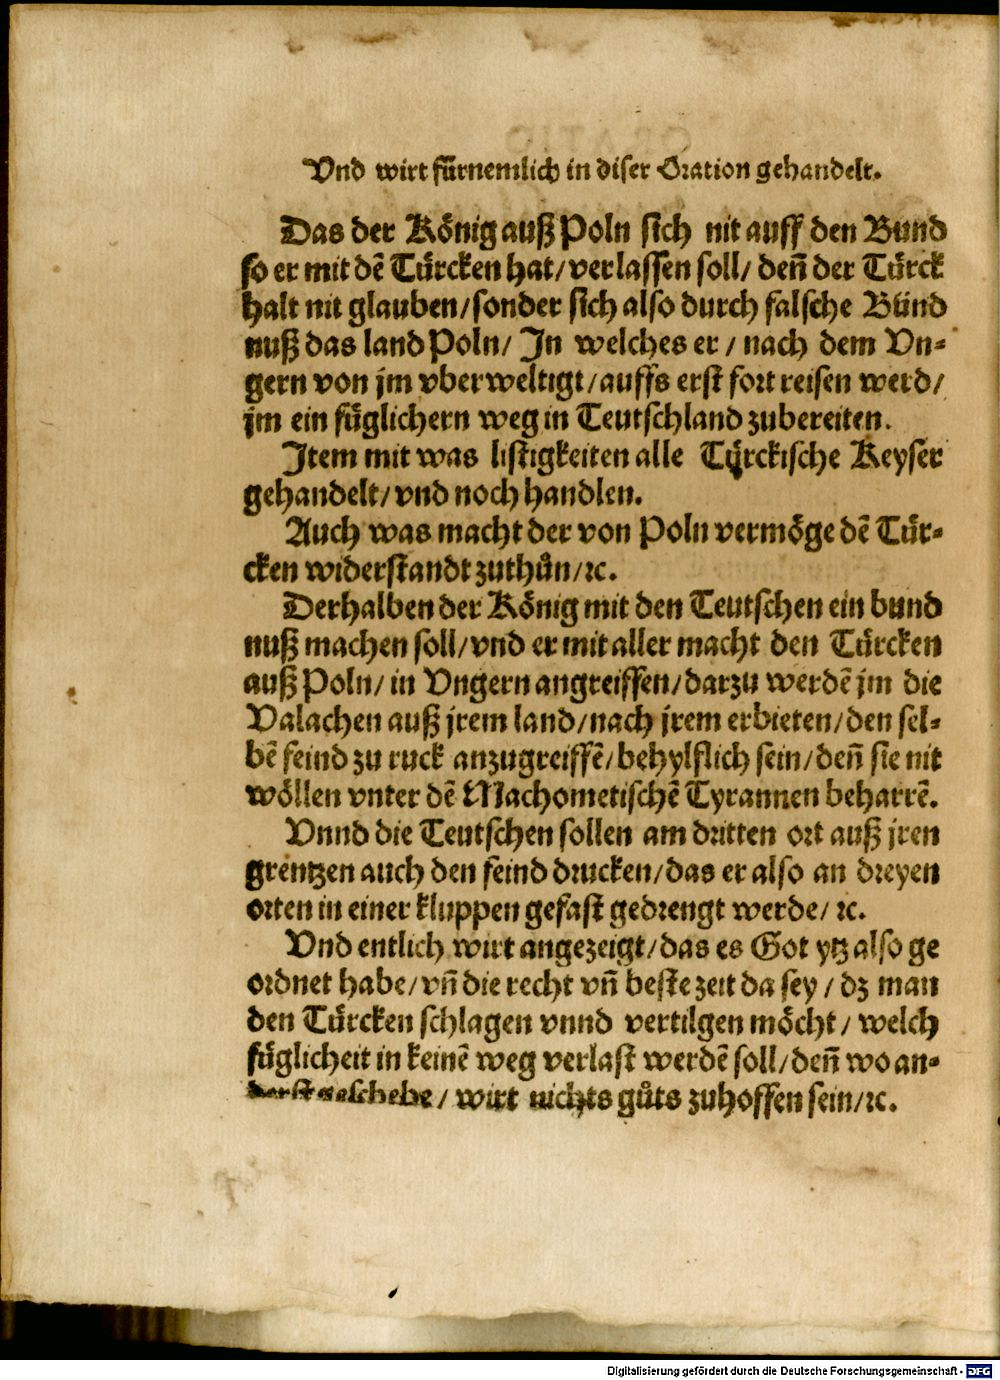 Vnd wirt fürnemlich in diser Oration gehandelt.
Das der König auß Poln sich nit auff den Bund
so er mit dē Türcken hat/ verlassen soll/ den̄ der Türck
halt nit glauben/ sonder sich also durch falsche Bünd
nuß das land Poln/ In welches er / nach dem Vn⸗
gern von jm vberweltigt/ auffs erst fort reisen werd/
jm ein füglichern weg in Teutschland zubereiten.
Item mit was listigkeiten alle Türckische Keyser
gehandelt/ vnd noch handlen.
Auch was macht der von Poln vermöge dē Tür⸗
cken widerstandt zuthůn/ ꝛc.
Derhalben der König mit den Teutschen ein bund
nuß machen soll/ vnd er mit aller macht den Türcken
auß Poln/ in Vngern angreiffen/ darzu werdē jm die
Valachen auß jrem land/ nach jrem erbieten/ den sel⸗
bē feind zu ruck anzugreiffē/ behylflich sein/ den̄ sie nit
wöllen vnter dē Machometischē Tyrannen beharrē.
Vnnd die Teutschen sollen am dritten ort auß jren
grentzen auch den feind drucken/ das er also an dreyen
orten in einer kluppen gefast gedrengt werde/ ꝛc.
Vnd entlich wirt angezeigt/ das es Got ytz also ge
ordnet habe/ vn̄ die recht vn̄ beste zeit da sey / dz man
den Türcken schlagen vnnd vertilgen möcht / welch
füglicheit in keinē weg verlast werdē soll/ den̄ wo an⸗
derst geschehe / wirt nichts gůts zuhoffen sein/ ꝛc.
Digitalisierung gefördert durch die Deutsche Forschungsgemeinschaft - DFG